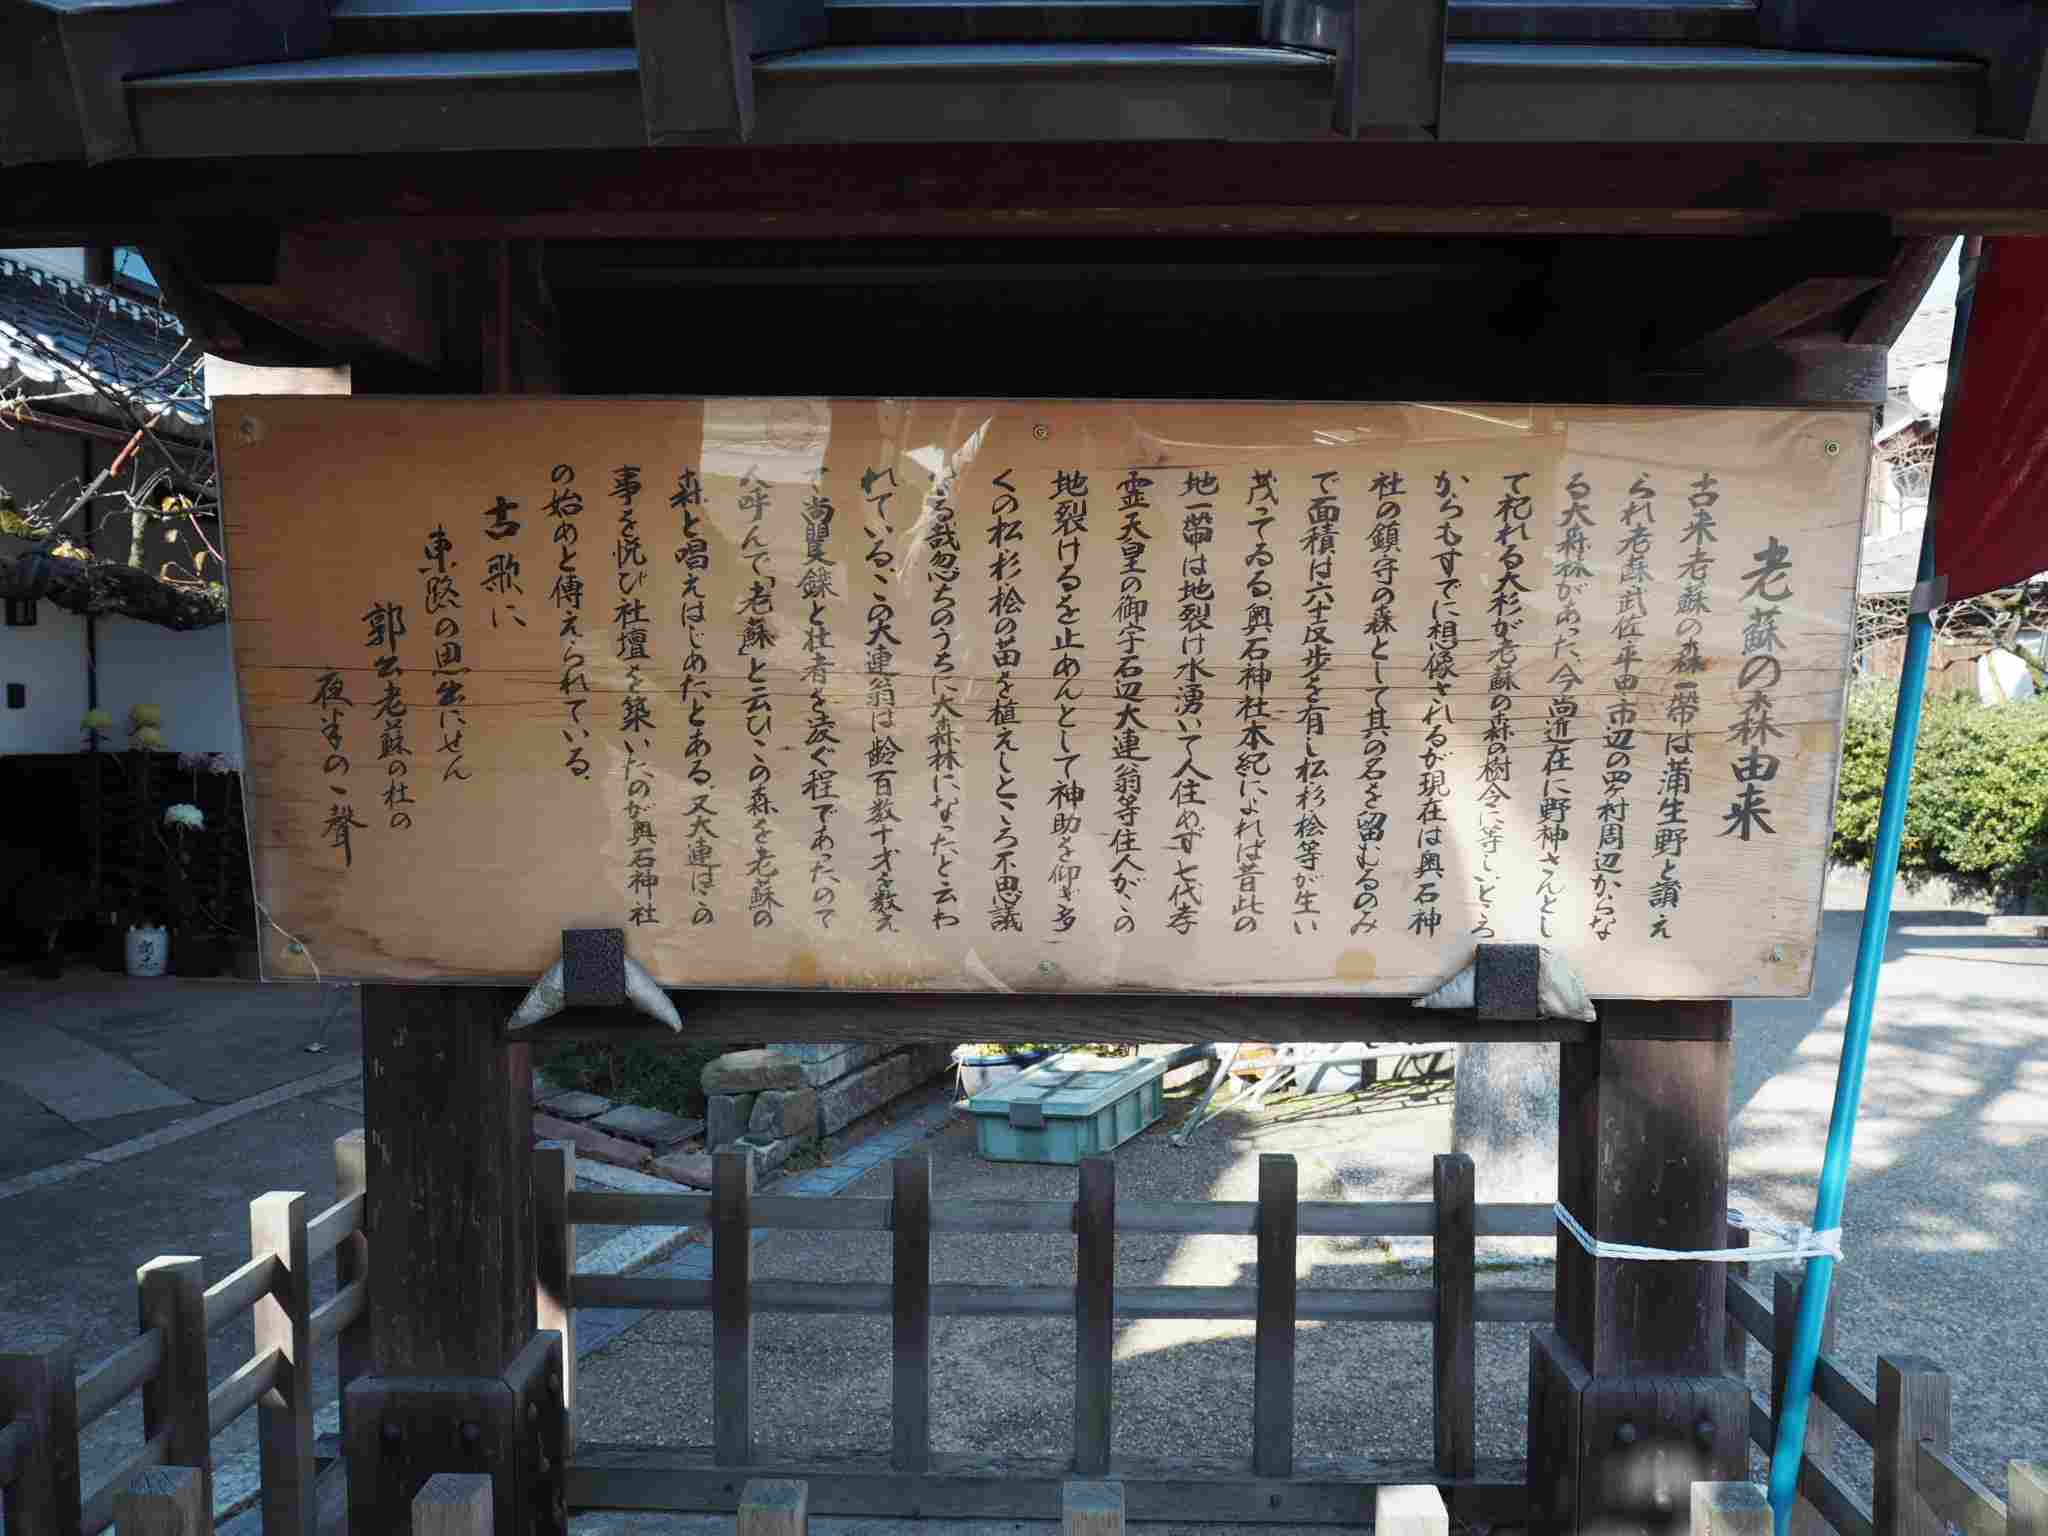 老蘇の森由来
古来老蘇の森一帯は蒲生野と讃え
られ老蘇武佐平田市辺の四ケ村周辺からな
る大森林があった、今尚近在に野神さんとし
て祀れる大杉が老蘇の森の樹令に等しいところ
からもすでに想像されるが現在は奥石神
社の鎮守の森として其の名を留むるのみ
で面積は六十反歩を有し松杉桧等が生い
茂ってゐる、奥石神社本紀によれば昔此の
地一帯は地裂け水湧いて人住めず七代孝
霊天皇の御宇石辺大連翁等住人がこの
地裂けるを止めんとして神助を仰ぎ多
くの松杉桧の苗を植えしところ不思議
なる哉忽ちのうちに大森林になったと云わ
れている、この大連翁は齢百数十才を数え
て尚矍鑠と壮者を凌ぐ程であったので
人呼んで「老蘇」と云ひこの森を老蘇の
森と唱えはじめたとある、又大連はこの
事を悦び社壇を築いたのが奥石神社
の始めと傳えられている、
古歌に
東路の思出にせん
郭公老蘇の杜の
夜半の一聲